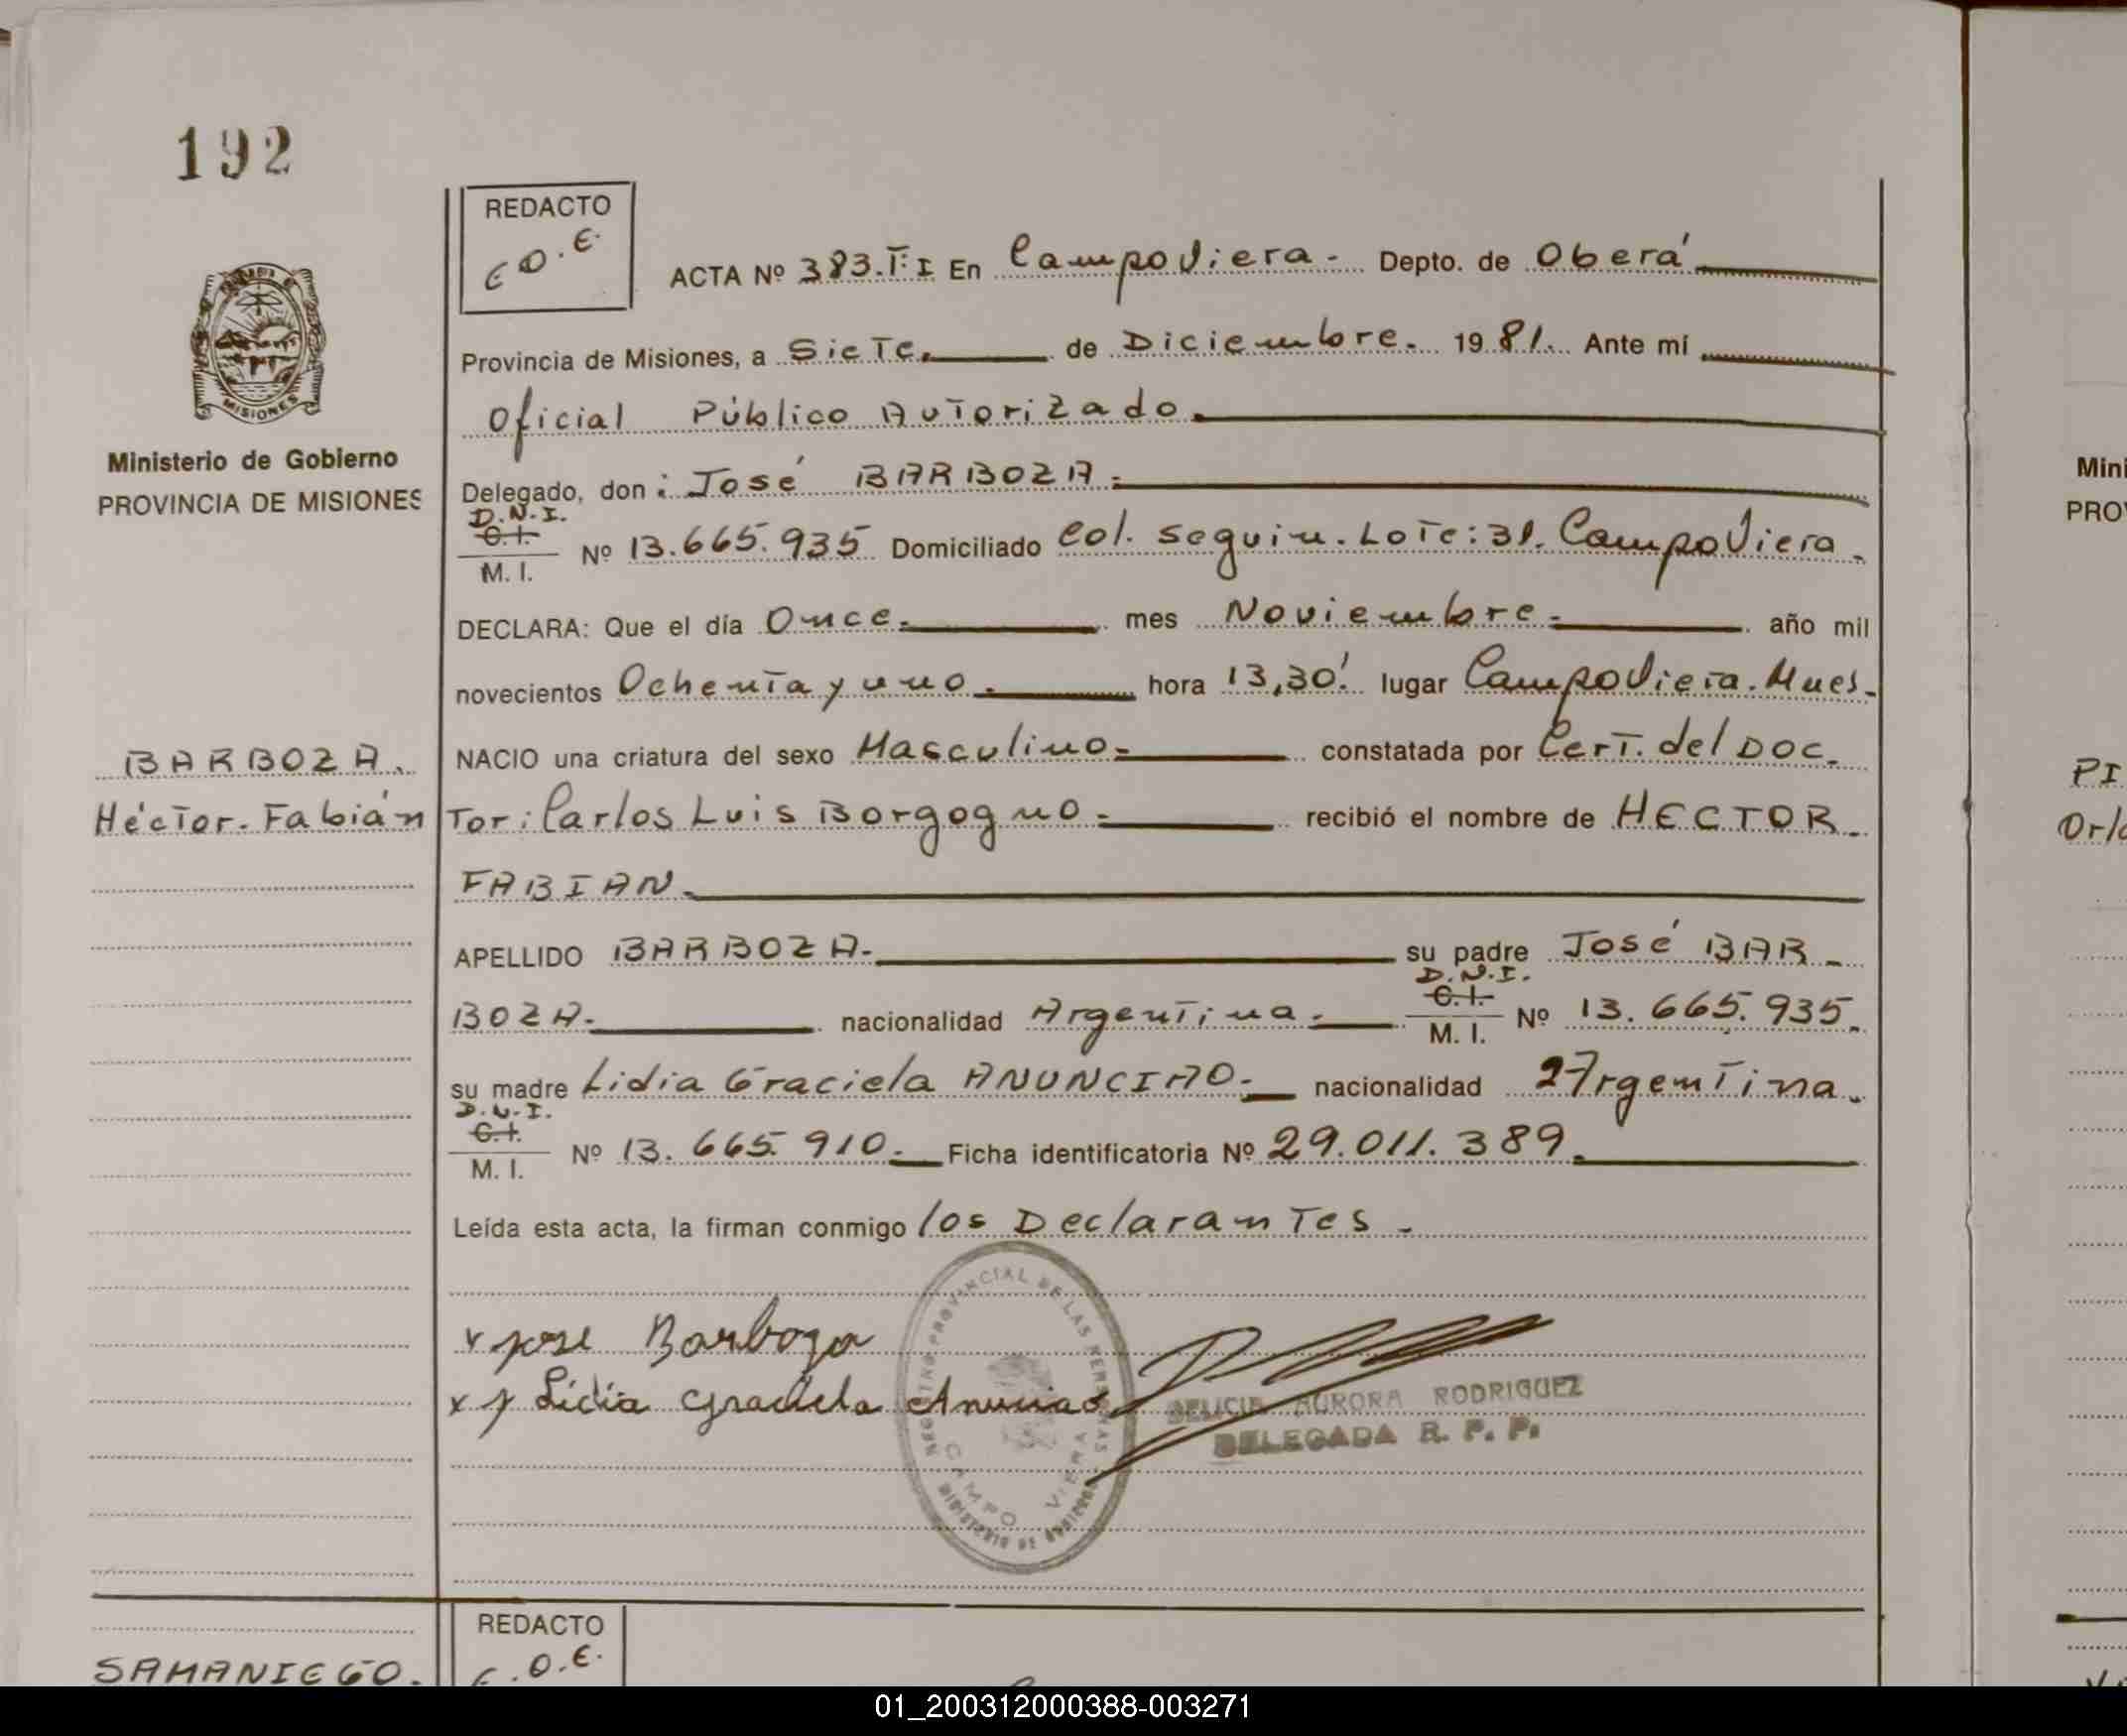 192
MISIONES
Ministerio de Gobierno
PROVINCIA DE MISIONES
BARBOZA.
Héctor. Fabián
REDACTO
E O. E.
ACTA Nº 383. T: I En Campo Viera. Depto. de Oberá
Provincia de Misiones, a Siete. de Diciembre. 1981. Ante mí
Oficial Público Autorizado.
Delegado, don: José BARBOZA.
D.N.I.
C.I.
M. I. Nº 13.665.935 Domiciliado Col. Seguin. Lote: 31. Campo Viera.
DECLARA: Que el día Once. mes Noviembre. año mil
novecientos Ochenta y uno. hora 13,30! lugar Campo Viera. Mnes.
NACIO una criatura del sexo Masculino. constatada por Cert. del Doc.
Tor: Carlos Luis Borgogno. recibió el nombre de HECTOR
FABIAN.
APELLIDO BARBOZA. su padre José BAR-
D.N.I.
C.I.
BOZA. nacionalidad Argentina. M. I. Nº 13.665.935.
su madre Lidia Graciela ANUNCIAO. nacionalidad Argentina.
D.N.I.
C.I.
M. I. Nº 13.665.910. Ficha identificatoria Nº 29.011.389.
Leída esta acta, la firman conmigo los Declarantes.
x jose Barboza
x Lidia Graciela Anunciao
REGISTRO PROVINCIAL DE LAS PERSONAS
CAMPO VIERA
MINISTERIO DE GOBIERNO
DELICIA AURORA RODRIGUEZ
DELEGADA R. P. P.
REDACTO
E. O. E.
SAMANIEGO.
Mini
PROV
PI
Orla
01_200312000388-003271